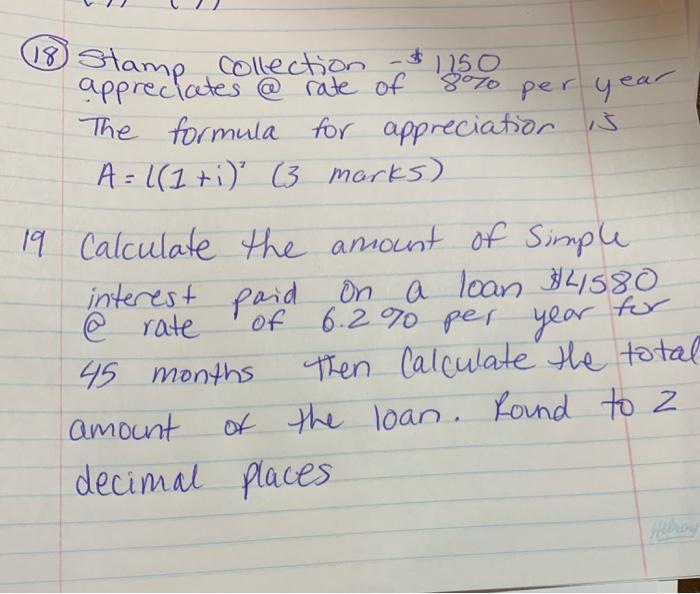 18 Stamp Collection - $1150
appreciates @ rate of 8% per year
The formula for appreciation is
A = l(1+i)² (3 marks)
19 Calculate the amount of Simple
interest paid on a loan $4580
@ rate of 6.2% per year for
45 months Then Calculate the total
amount of the loan. Round to 2
decimal places